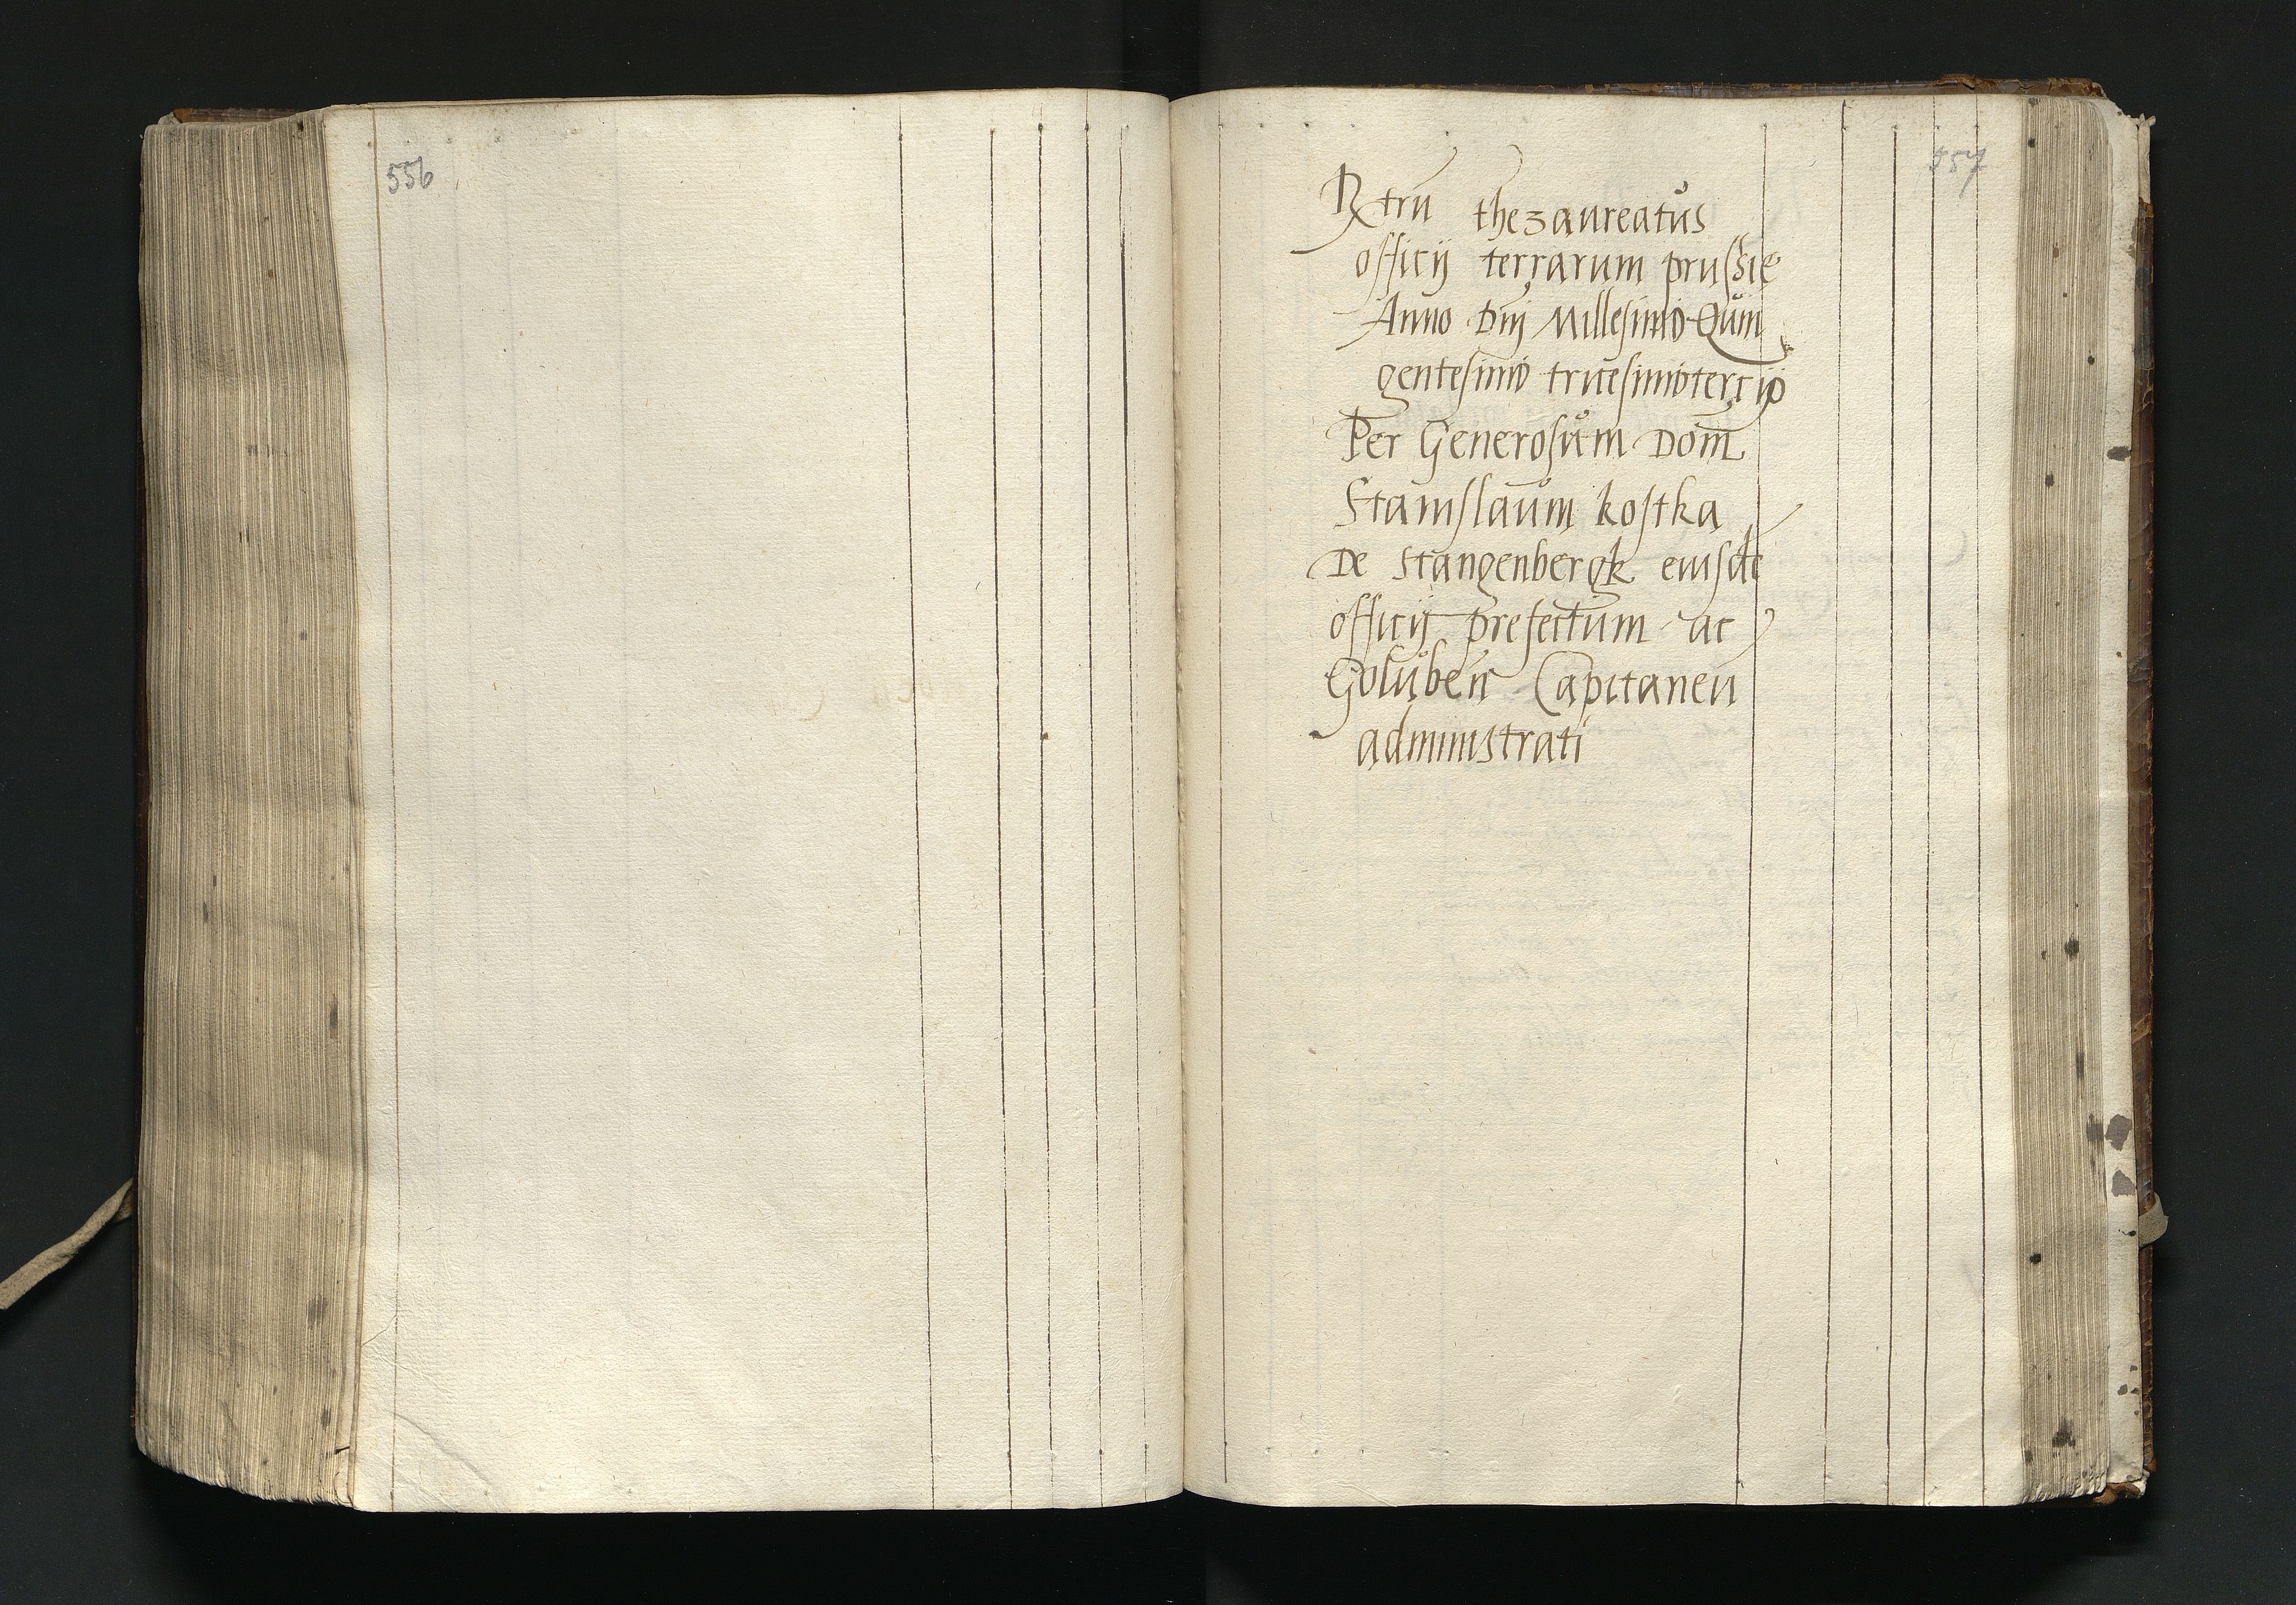 556
557
Rͯtrū thezaureatůs
officij terrarum prussie
Anno Dnj Millesimo Quin
gentesimo tricesimotercijo
Per Generosům Dom̄
Stanislaům kostka
De Stangenbergk eiusdē
officij prefectum ac
Golůbeñ Capitaneū
administrati